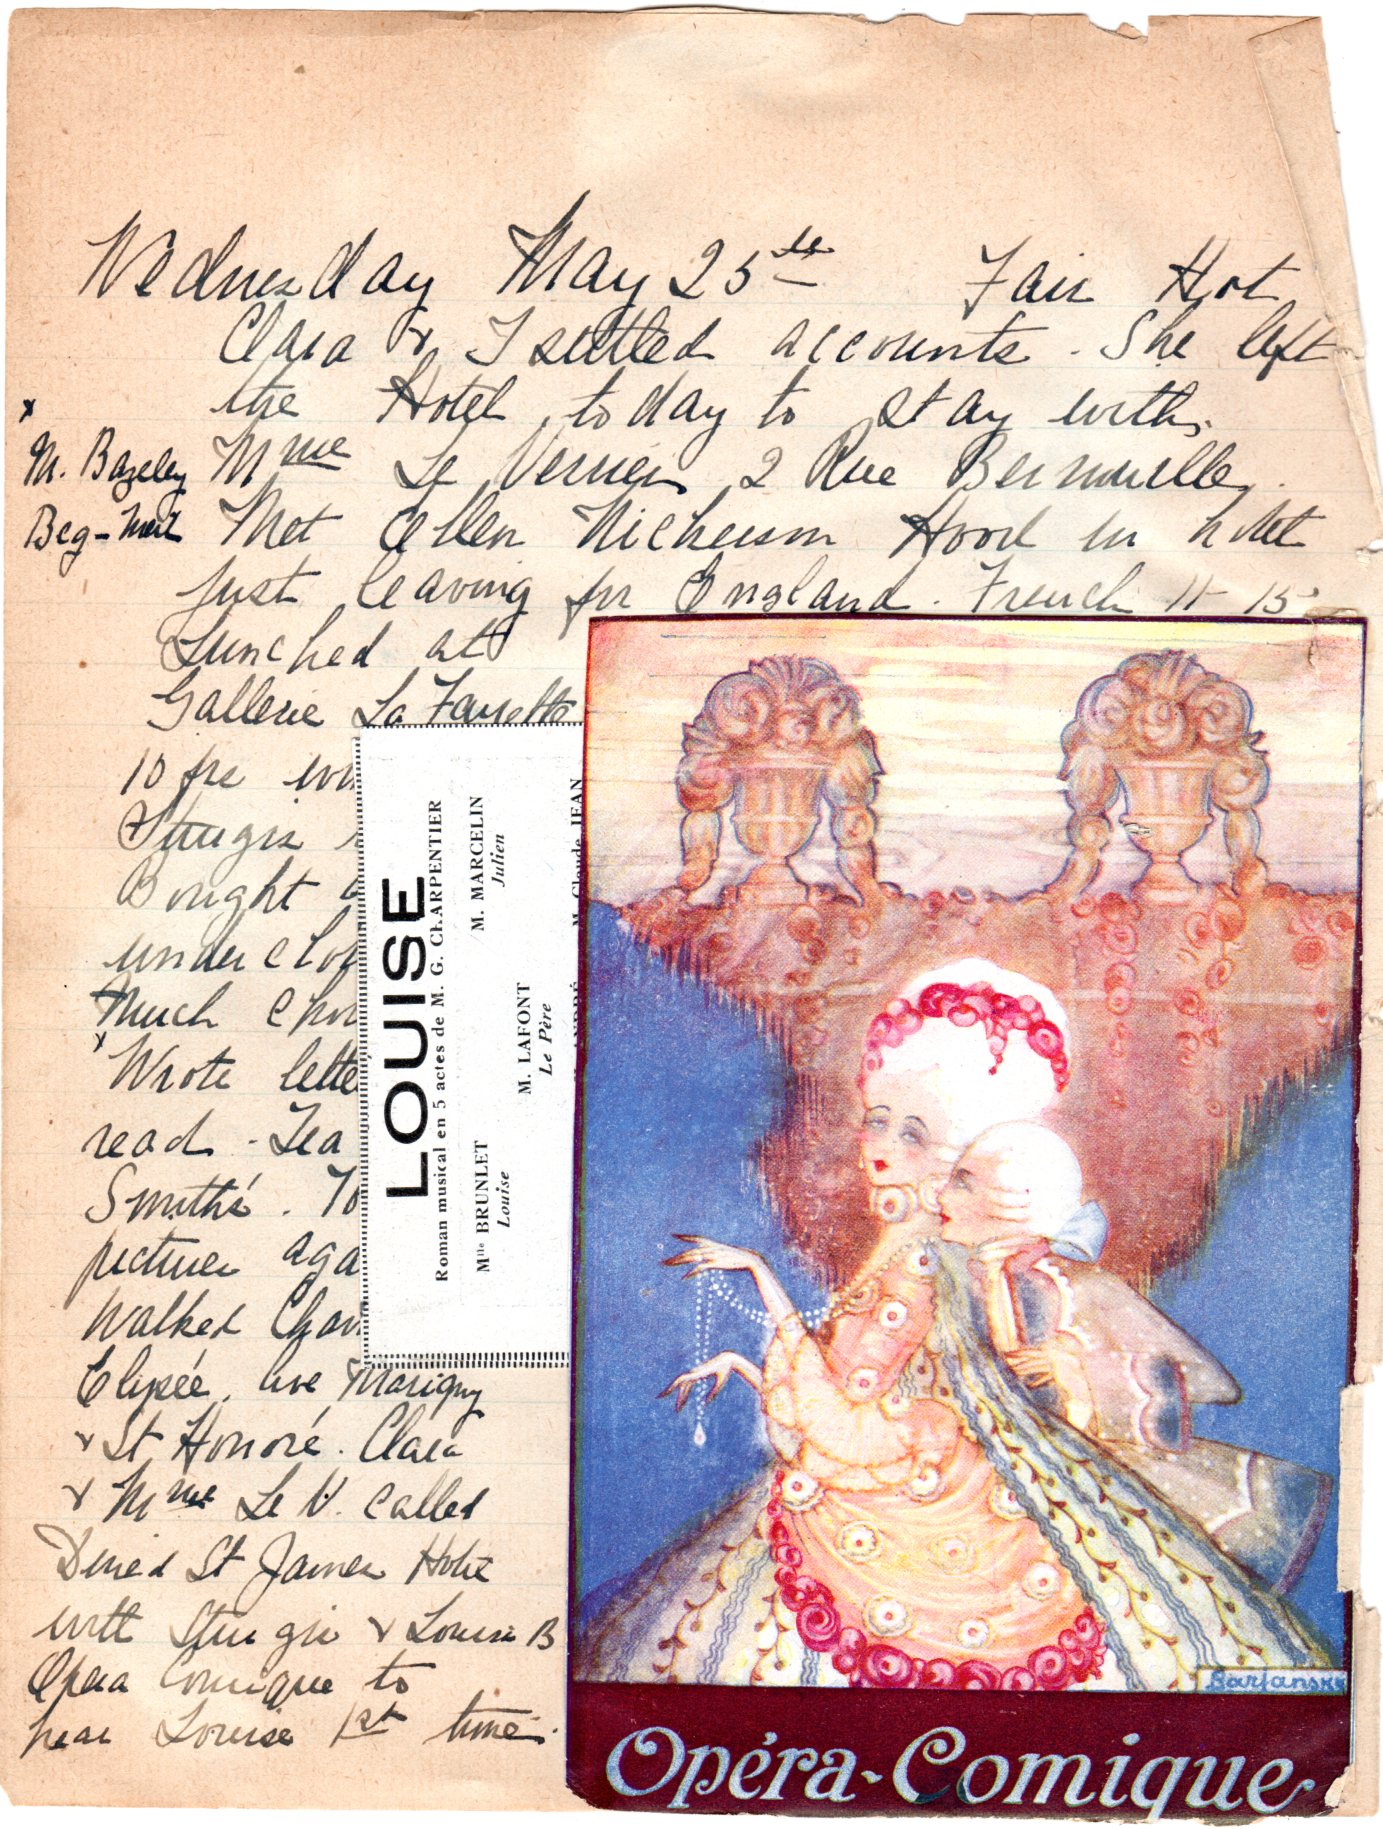 Wednesday May 25th Fair Hot
Clara & I settled accounts. She left
the Hotel today to stay with
x
M. Bazeley
Beg-Meil
Mme Le Verrier 2 Rue
Met Ellen Nickerson Hood in hotel
just leaving for England. French 11-15
Lunched at
Gallerie La Fayette
10 frs
Sturgis
Bought
under clo
Much
x Wrote lette
read - Tea
Smith's. To
pictures aga
Walked Cham
Elysée, Ave Marigny
& St Honoré. Clara
& Mme Le V. called
Dined St James Hotel
with Sturgis & Louise B
Opera Comique to
hear Louise 1st time.
LOUISE
Roman musical en 5 actes de M. G. CHARPENTIER
Mlle BRUNLET
Louise
M. MARCELIN
Julien
M. LAFONT
Le Père
M. Claude JEAN
Barjansky
Opéra-Comique